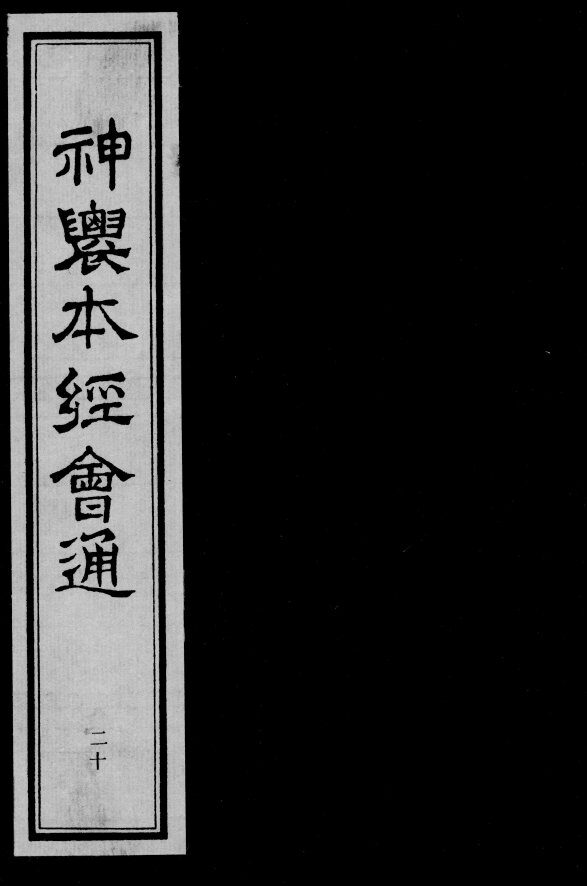 神農本經會通
二十